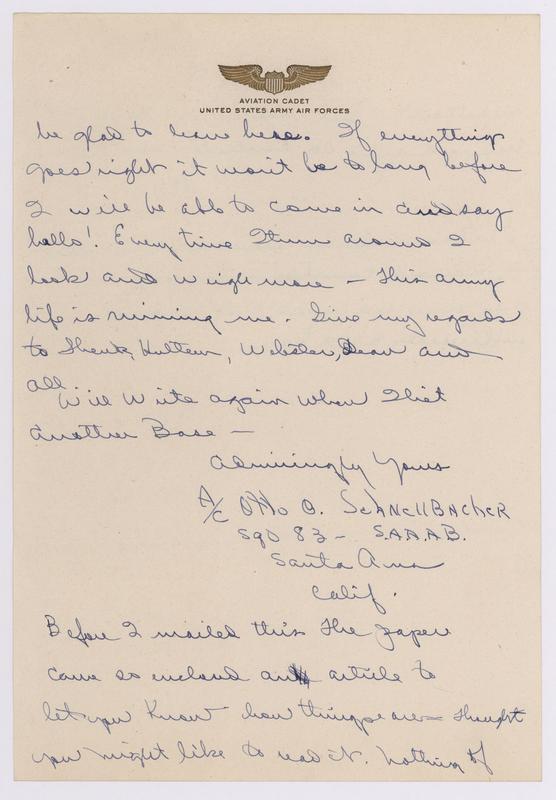 AVIATION CADET
UNITED STATES ARMY AIR FORCES
be glad to leave here. If everything
goes right it won't be to long before
I will be able to come in and say
hello! Every time I turn around I
look and weigh more - this army
life is ruining me. Give my regards
to Shenk, Hultzen, Webster, Dean and
all. Will write again when I hit
another Base -
Admiringly Yours
A/C Otto O. Schnellbacher
Sqd 83 - S.A.A.A.B.
Santa Ana
Calif.
Before I mailed this the paper
came so enclosed an article to
let you know how things are - thought
you might like to read it. Nothing of